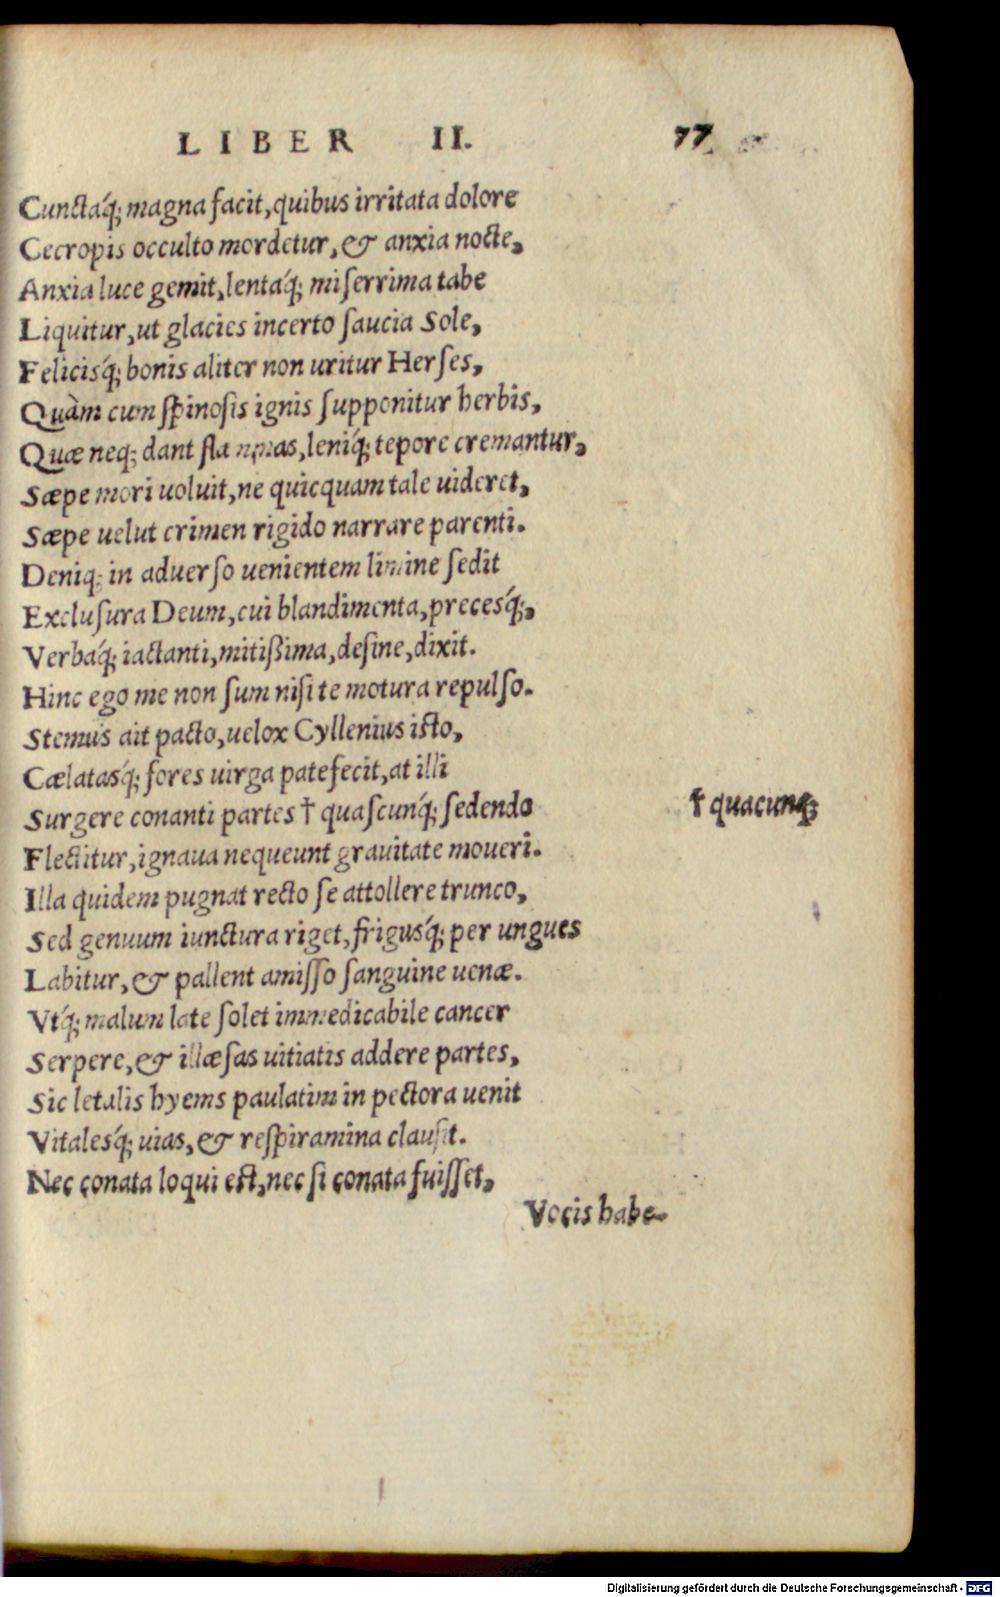 LIBER II. 77
Cunctaq́; magna facit, quibus irritata dolore
Cecropis occulto mordetur, & anxia nocte,
Anxia luce gemit, lentaq́; miserrima tabe
Liquitur, ut glacies incerto saucia Sole,
Felicisq́; bonis aliter non uritur Herses,
Quàm cum spinosis ignis supponitur herbis,
Quæ neq; dant flammas, leniq́; tepore cremantur,
Sæpe mori uoluit, ne quicquam tale uideret,
Sæpe uelut crimen rigido narrare parenti.
Deniq; in aduerso uenientem limine sedit
Exclusura Deum, cui blandimenta, precesq́;,
Verbaq́; iactanti, mitißima, desine, dixit.
Hinc ego me non sum nisi te motura repulso.
Stemus ait pacto, uelox Cyllenius isto,
Cælatasq́; fores uirga patefecit, at illi
Surgere conanti partes † quascunq́; sedendo
† quacunq;
Flectitur, ignaua nequeunt grauitate moueri.
Illa quidem pugnat recto se attollere trunco,
Sed genuum iunctura riget, frigusq́; per ungues
Labitur, & pallent amisso sanguine uenæ.
Vtq́; malum late solet immedicabile cancer
Serpere, & illæsas uitiatis addere partes,
Sic letalis hyems paulatim in pectora uenit
Vitalesq́; uias, & respiramina clausit.
Nec conata loqui est, nec si conata fuisset,
Vocis habe-
Digitalisierung gefördert durch die Deutsche Forschungsgemeinschaft - DFG